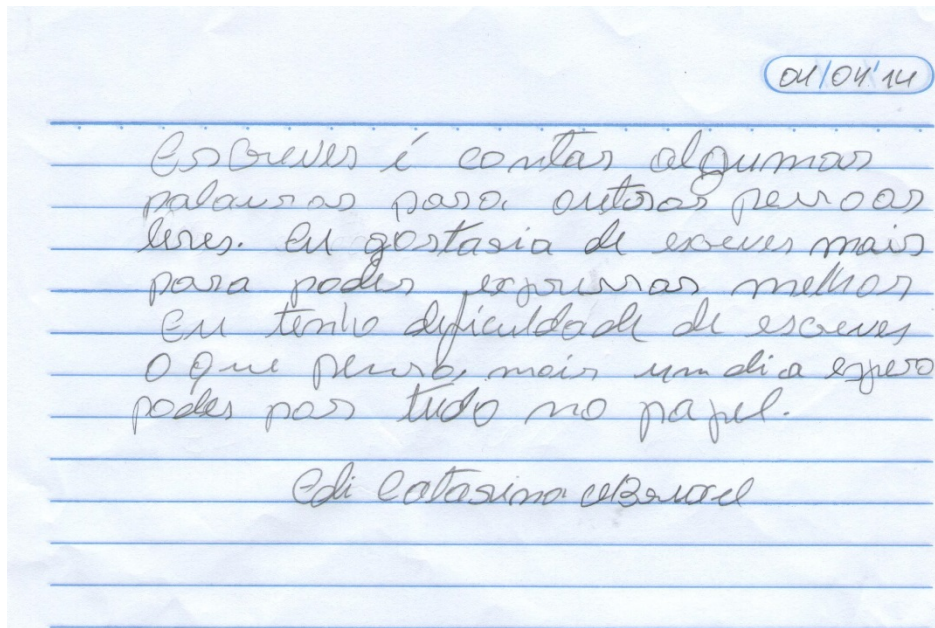 04/04/14
Escrever é contar algumas
palavras para outras pessoas
leres. Eu gostaria de escrever mais
para poder expressar melhor
Eu tenho dificuldade de escrever
o que penso, mais um dia espero
poder por tudo no papel.
Edi Catarina